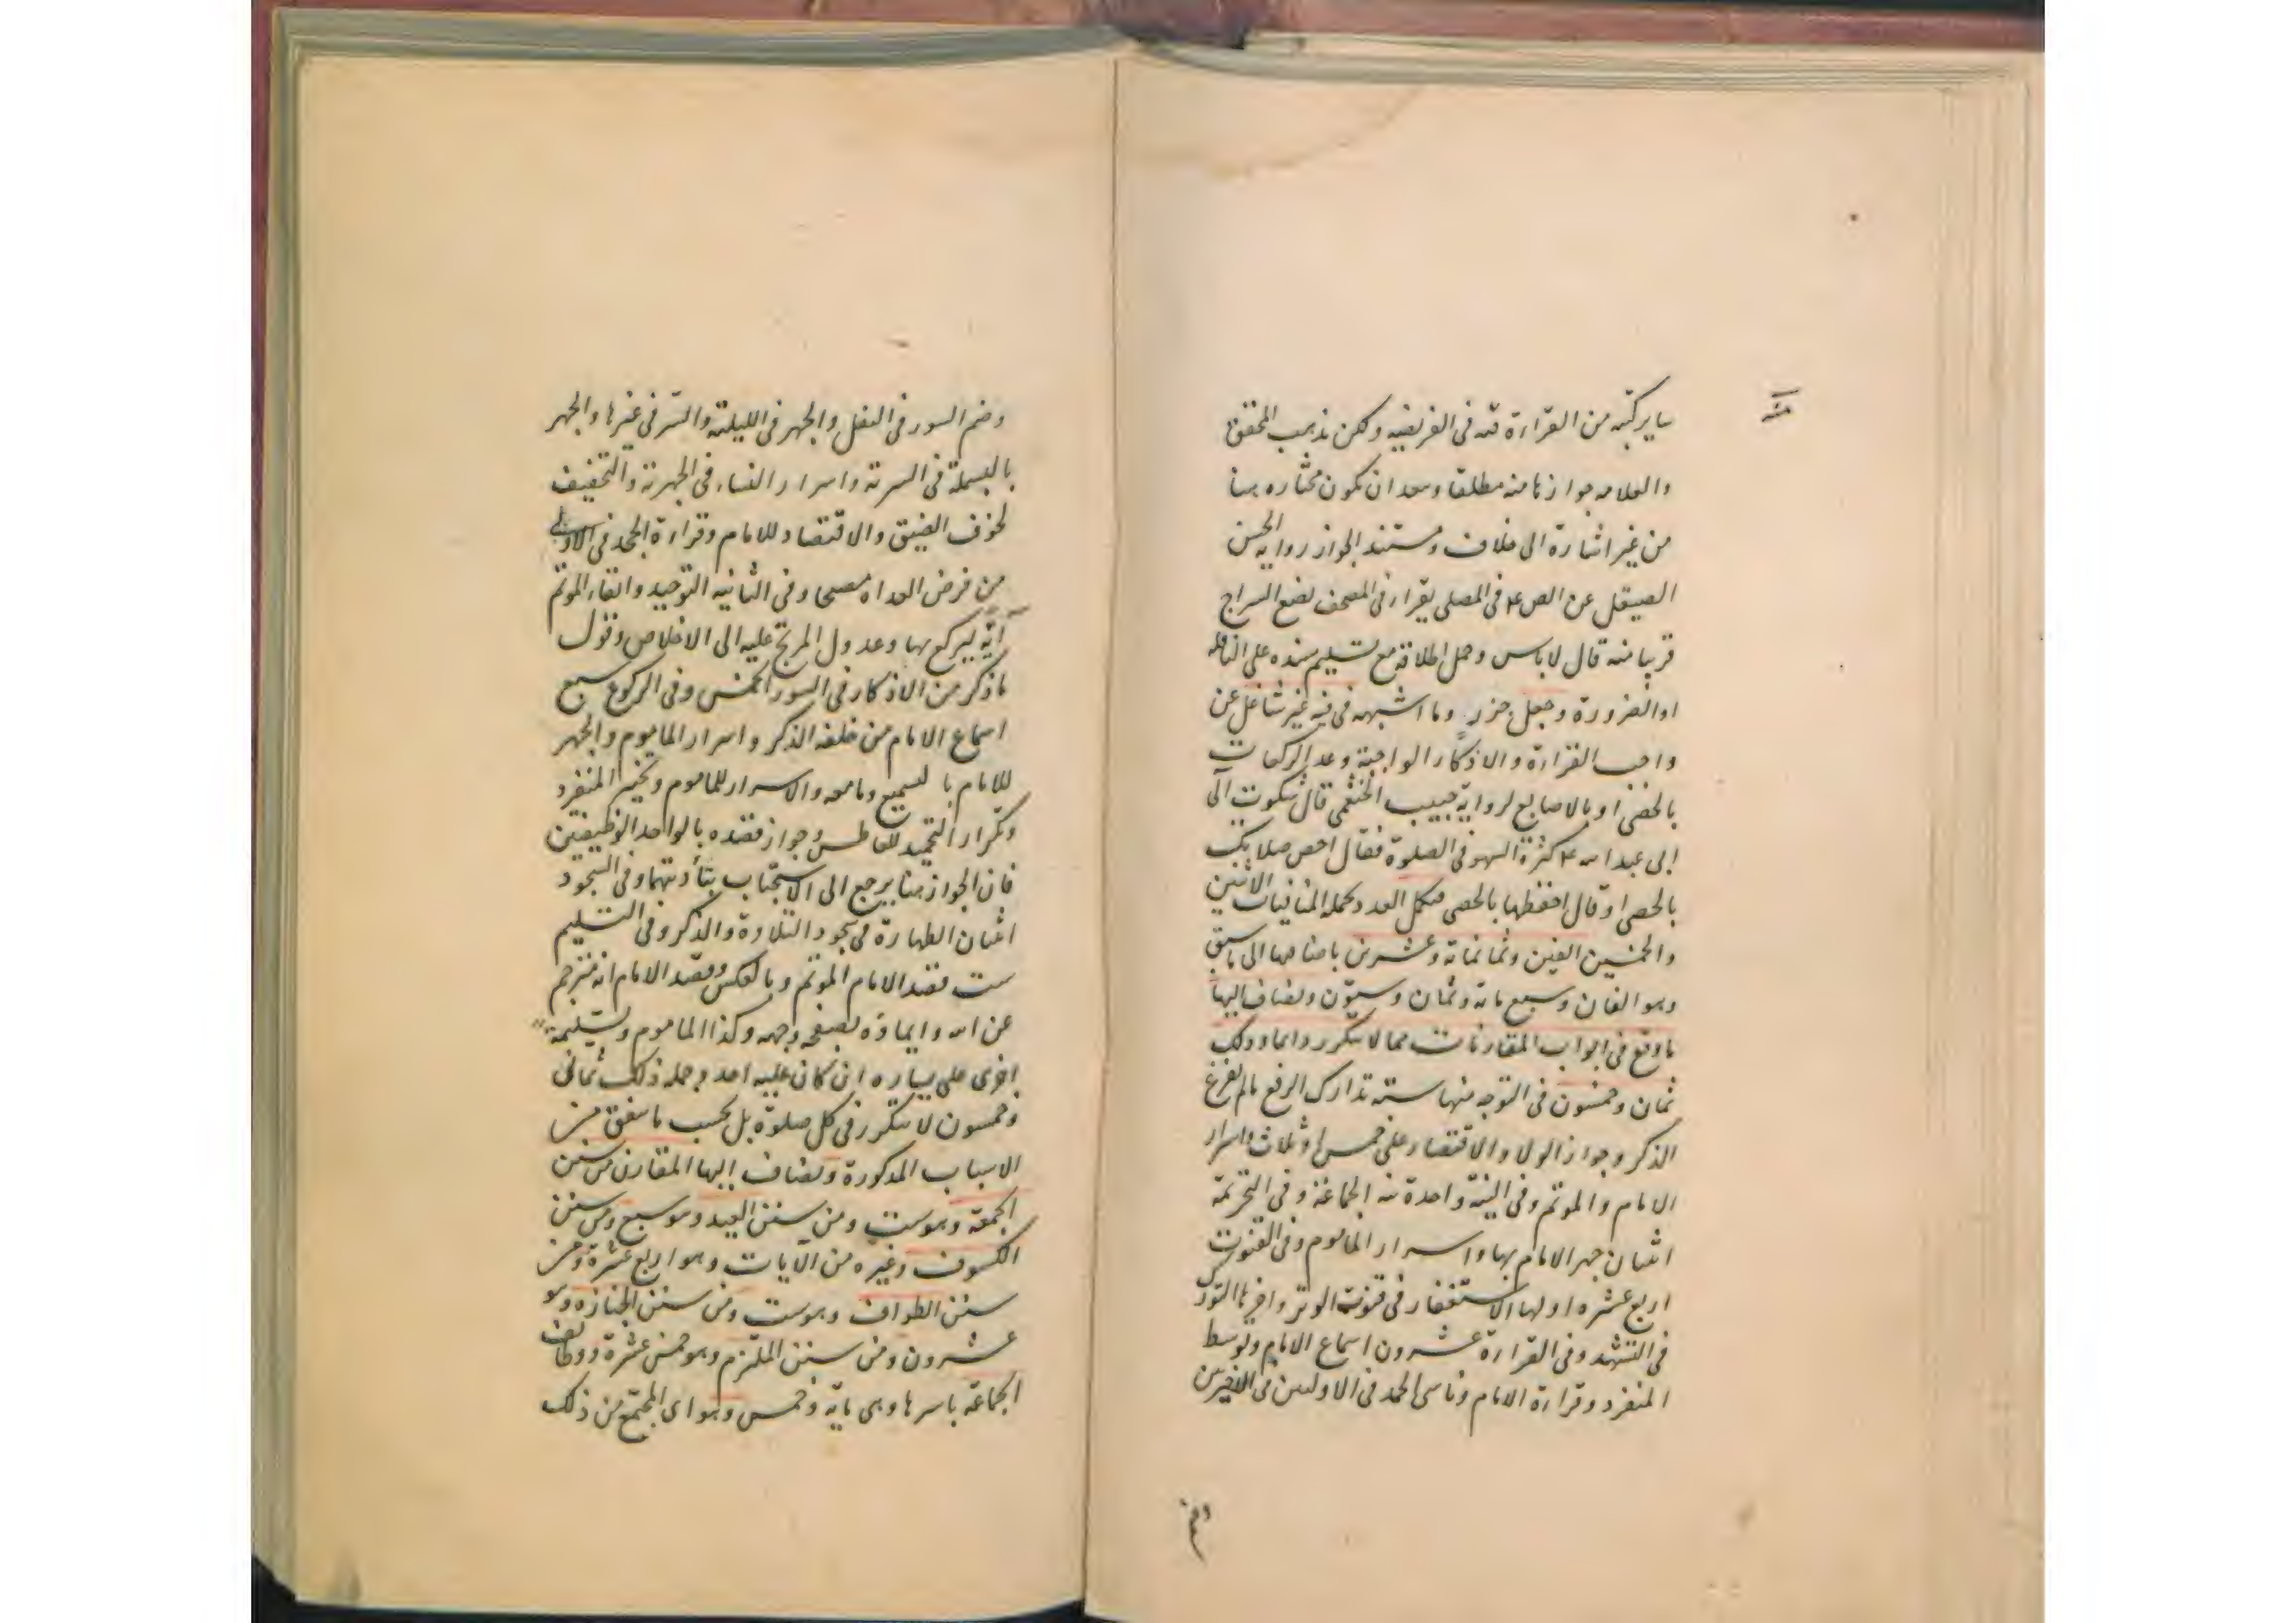 ساير كتبه من القراءة فيه فى الفريضة ولكن مذهب المحقق
والعلامه جوازها منه مطلقا وبعد ان يكون مختاره هنا
من غير اشارة الى خلاف ومستند الجواز رواية الحسن
الصيقل عن الص ع فى المصلى يقرا فى المصحف يضع السراج
قريبا منه قال لا باس وحمل اطلاقه مع تسليم سنده على النافلة
او الضرورة وجعل خرز وما اشبهه فى فيه غير شاغل عن
واجب القراءة والاذكار الواجبة وعد الركعات
بالحصى او بالاصابع لرواية حبيب الخثعمى قال شكوت الى
ابى عبد الله ع كثرة السهو فى الصلوة فقال احص صلاتك
بالحصى او قال احفظها بالحصى فيكمل العدد بجملة المنافيات الاثنين
والخمسين الفين وثمانمائة وعشرين باضافتها الى ما سبق
وهو الفان وسبع مائة وثمان وستون ويضاف اليها
ما وقع فى ابواب المقارنات مما لا يتكرر دائما وذلك
ثمان وخمسون فى التوجه منها ستة تدارك الرفع ما لم يفرغ
الذكر وجواز الولا والاقتصار على خمس او ثلاث واسرار
الامام والموتم وفى النية واحدة نية الجماعة وفى التحريمة
اثنان جهر الامام بها واسرار الماموم وفى القنوت
اربع عشره اولها الاستغفار فى قنوت الوتر واخرها التورك
فى التشهد وفى القراءة عشرون اسماع الامام وتوسط
المنفرد وقراءة الامام وناسى الحمد فى الاوليين فى الاخيرتين
وضم
وضم السور فى النفل والجهر فى الليلية والسر فى غيرها والجهر
بالبسملة فى السرية واسرار النساء فى الجهرية والتخفيف
لخوف الضيق والاقتصار للامام وقراءة الجحد فى الاولى
من فرض الغداة مصبحا وفى الثانية التوحيد وابقاء الموتم
آية ليركع بها وعدول المرتج عليه الى الاخلاص وقول
ما ذكر من الاذكار فى السور الخمس وفى الركوع سبع
اسماع الامام من خلفه الذكر واسرار الماموم والجهر
للامام بالتسميع وما معه والاسرار للماموم وتخير المنفرد
وتكرار التحميد للعاطس وجواز قصده بالواحد الوظيفتين
فان الجواز هنا يرجع الى الاستحباب بتأديتهما وفى السجود
اثنان الطهارة فى سجود التلاوة والذكر وفى التسليم
ست قصد الامام الموتم وبالعكس وقصد الامام انه مترجم
عن الله وايماؤه بصفحة وجهه وكذا الماموم وتسليمة
اخرى على يساره ان كان عليه احد وجملة ذلك ثمانى
وخمسون لا يتكرر فى كل صلوة بل بحسب ما يتفق من
الاسباب المذكورة ويضاف اليها المقارن من سنن
الجمعة وهو ست ومن سنن العيد وهو سبع ومن سنن
الكسوف وغيره من الآيات وهو اربع عشرة ومن
سنن الطواف وهو ست ومن سنن الجنازه وهو
عشرون ومن سنن الملتزم وهو خمس عشرة ووظائف
الجماعة باسرها وهى مايه وخمس وهو اى المجتمع من ذلك